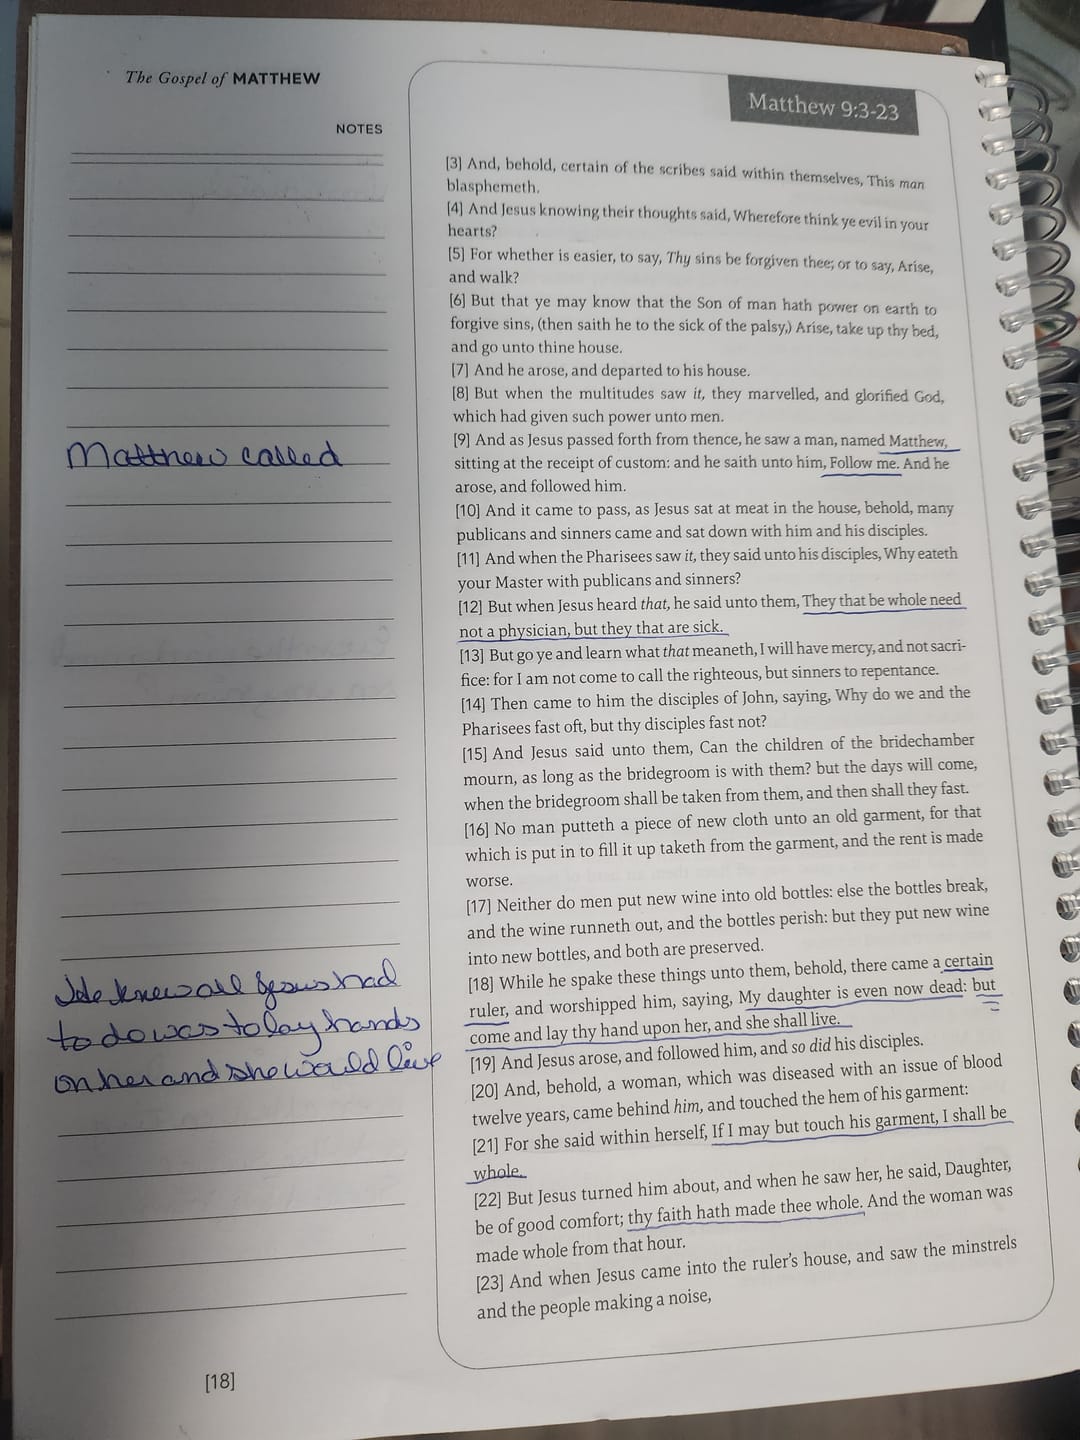 The Gospel of MATTHEW
NOTES
Matthew called
He knew all Jesus had
to do was to lay hands
on her and she would live
[18]
Matthew 9:3-23
[3] And, behold, certain of the scribes said within themselves, This man
blasphemeth.
[4] And Jesus knowing their thoughts said, Wherefore think ye evil in your
hearts?
[5] For whether is easier, to say, Thy sins be forgiven thee; or to say, Arise,
and walk?
[6] But that ye may know that the Son of man hath power on earth to
forgive sins, (then saith he to the sick of the palsy,) Arise, take up thy bed,
and go unto thine house.
[7] And he arose, and departed to his house.
[8] But when the multitudes saw it, they marvelled, and glorified God,
which had given such power unto men.
[9] And as Jesus passed forth from thence, he saw a man, named Matthew,
sitting at the receipt of custom: and he saith unto him, Follow me. And he
arose, and followed him.
[10] And it came to pass, as Jesus sat at meat in the house, behold, many
publicans and sinners came and sat down with him and his disciples.
[11] And when the Pharisees saw it, they said unto his disciples, Why eateth
your Master with publicans and sinners?
[12] But when Jesus heard that, he said unto them, They that be whole need
not a physician, but they that are sick.
[13] But go ye and learn what that meaneth, I will have mercy, and not sacri-
fice: for I am not come to call the righteous, but sinners to repentance.
[14] Then came to him the disciples of John, saying, Why do we and the
Pharisees fast oft, but thy disciples fast not?
[15] And Jesus said unto them, Can the children of the bridechamber
mourn, as long as the bridegroom is with them? but the days will come,
when the bridegroom shall be taken from them, and then shall they fast.
[16] No man putteth a piece of new cloth unto an old garment, for that
which is put in to fill it up taketh from the garment, and the rent is made
worse.
[17] Neither do men put new wine into old bottles: else the bottles break,
and the wine runneth out, and the bottles perish: but they put new wine
into new bottles, and both are preserved.
[18] While he spake these things unto them, behold, there came a certain
ruler, and worshipped him, saying, My daughter is even now dead: but
come and lay thy hand upon her, and she shall live.
[19] And Jesus arose, and followed him, and so did his disciples.
[20] And, behold, a woman, which was diseased with an issue of blood
twelve years, came behind him, and touched the hem of his garment:
[21] For she said within herself, If I may but touch his garment, I shall be
whole.
[22] But Jesus turned him about, and when he saw her, he said, Daughter,
be of good comfort; thy faith hath made thee whole. And the woman was
made whole from that hour.
[23] And when Jesus came into the ruler's house, and saw the minstrels
and the people making a noise,